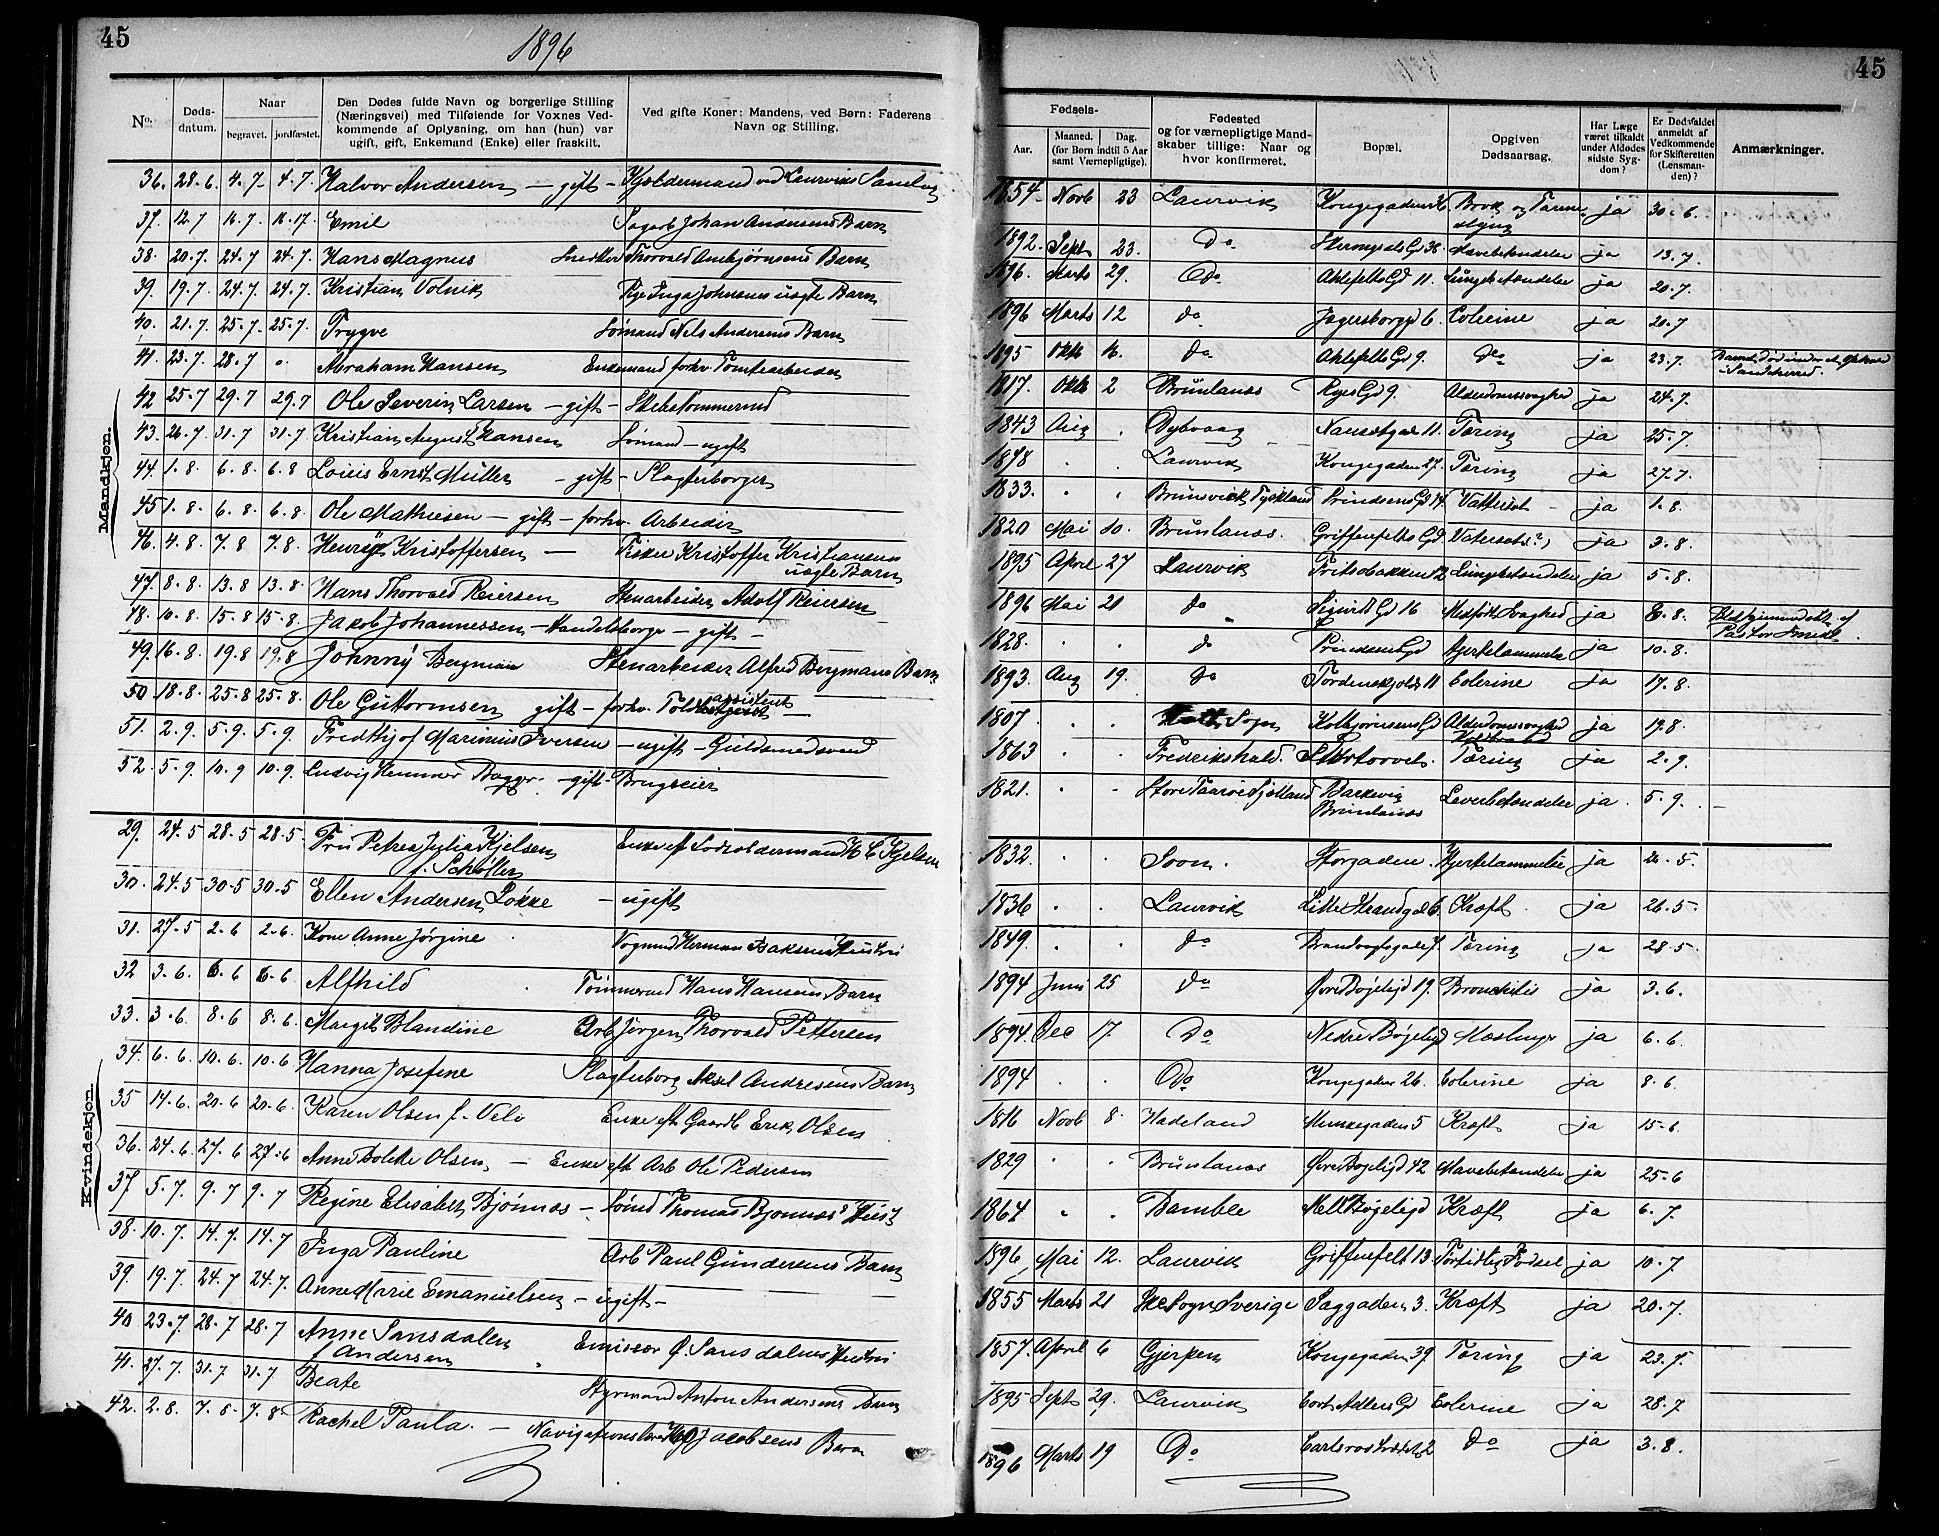 45
1896
No.
Døds-
datum.
Naar
begravet.
jordfæstet.
Den Dødes fulde Navn og borgerlige Stilling
(Næringsvei) med Tilføiende for Voxnes Ved-
kommende af Oplysning, om han (hun) var
ugift, gift, Enkemand (Enke) eller fraskilt.
Ved gifte Koner: Mandens, ved Børn: Faderens
Navn og Stilling.
Mandkjøn.
36. 28.6. 4.7. 4.7. Halvor Andersen — gift —
37. 12.7 16.7. 16.17. Emil Johan Andersens Barn
38. 20.7. 24.7 24.7. Hans Magnus Snedker Thorvald Barn
39. 19.7. 24.7. 24.7. Kristian Inga Johnsens uægte Barn
40. 21.7. 25.7. 25.7. Trygve Sømand Nils Andersens Barn
41. 23.7. 28.7 " Abraham Hansen Enkemand forhv. Tomtearbeider
42 25.7 29.7 29.7 Ole Severin Larsen — gift — Skibstømmermd
43. 26.7. 31.7 31.7 Kristian August Hansen Sømand — ugift
44. 1.8. 6.8. 6.8 Louis Ernst Müller — gift — Slagterborger
45 1.8. 6.8. 6.8. Ole Mathiesen — gift — forhv. Arbeider
46. 4.8. 7.8 7.8. Kristoffersen — Fisker Kristoffer Kristiansens
uægte Barn
47. 8.8. 13.8 13.8. Hans Thorvald Reiersen Stenarbeider Adolf Reiersen
48. 10.8. 15.8 15.8. Jakob Johannessen — Handelsborger — gift —
49. 16.8. 19.8 19.8 Johnny Bergman Stenarbeider Alfred Bergmans Barn
50 18.8. 25.8 25.8. Ole Guttormsen gift — forhv. Told assistent —
51. 2.9. 5.9. 5.9. Fredthjof Marinius Iversen — ugift — Guldsmedsvend
52. 5.9. 10.9 10.9. Ludvig Bagger — gift — Brugseier
Kvindekjøn.
29. 24.5 28.5 28.5. Fru Petrea Julia Kjelsen Enke ef H C Kjelsen
f. Schøller
30. 24.5 30.5 30.5 Ellen Andersen Løkke — ugift
31. 27.5 2.6 2.6. Kone Anne Jørgine Vognmd Herman Isaksens Hustru
32 3.6. 6.6 6.6 Alfhild Tømmermd Hans Hansens Barn
33. 3.6. 8.6 8.6. Margit Blandine Arb Jørgen Thorvald Pettersen
34. 6.6. 10.6. 10.6 Hanna Josefine Slagterborg Aksel Andresens Barn
35 14.6. 20.6 20.6. Karen Olsen f. Velo Enke eft Gaardb Erik Olsen
36. 24.6 27.6 27.6 Anne Bolette Olsen — Enke eft Arb Ole Pedersen
37 5.7. 9.7 9.7 Regine Elisabet Bjønnæs — Sømd Thomas Bjønnæs's Hust
38. 10.7. 14.7. 14.7 Inga Pauline Arb Paul Gundersens Barn
39. 19.7. 24.7 24.7. Anne Marie Emanuelsen — ugift —
40 23.7. 28.7 28.7 Anne Sansdalen Emissær Ø. Sansdalens Hustru
f Andersen
41. 27.7. 31.7 31.7 Beate Styrmand Anton Andersens Barn
42. 2.8. 7.8. 7.8. Rachel Paula. — Jacobsens Barn
45
Fødsels-
Aar.
Maaned.
Dag.
(for Børn indtil 5 Aar
samt Værnepligtige).
Fødested
og for værnepligtige Mand-
skaber tillige: Naar og
hvor konfirmeret.
Bopæl.
Opgiven
Dødsaarsag.
Har Læge
været tilkaldt
under Afdødes
sidste Syg-
dom?
Er Dødsfaldet
anmeldt af
Vedkommende
for Skifteretten
(Lensman-
den)?
Anmærkninger.
1854. Novb 23 Laurvik Brok og Tarm ja 30.6.
1892. Sept 23. do Mavebetændelse ja 13.7.
1896. Marts 29. do Ahlefelts Gd 11. Lungebetændelse ja 20.7.
1896 Marts 12 do Jegersborggd 6. Colerine ja 20.7
1895 Okt 16. do Ahlefelts Gd 9. do ja 23.7.
1817. Okt 2 Brunlanæs Rejes Gd 9. Alderdomssvaghed ja 24.7.
1843 Aug " Dybvaag 11. Tæring ja 25.7
1878 " " Laurvik Kongegaden 27. Tæring ja 27.7.
1833. " " Brunsvick, Tyskland Prindsens Gd 14. Vattersot — ja 1.8.
1820 Mai 10. Brunlanæs. Griffenfelts Gd ja 3.8.
1895 April 27 Laurvik Fritsøbakken 12 Lungebetændelse ja 5.8.
1896 Mai 21 do Sigurds Gd 16 Medfødt Svaghed ja 8.8. Pastor
1828. " do Prindsens Gd Hjertelammelse ja 10.8.
1893. Aug 19. do Tordenskjolds 11 Colerine ja 17.8.
1807 " " Sogn Kolbjørnsens Gd Alderdomssvaghed ja 19.8.
1863 " " Fredrikshald. Storetorvet. Tæring ja 2.9.
1821. " " Store Sjælland Leverbetændelse ja. 5.9.
Brunlanæs
1832. " " Soon. Storgaden. Hjertelammelse ja 26.5.
1836 " " Laurvik Lille Strandgd 6. Kræft. ja 26.5.
1849. " do Brandvagtsgade 7. Tæring ja 28.5
1894 Juni 25 do Øvre Bøgeligd 19. Bronchitis ja 3.6.
1894. Dec 17. Do Nedre Bøgeligd Mæslinger ja 6.6.
1894 " " Do Kongegaden 26. Colerine ja 8.6.
1816 Novb 8. Hadeland Munkegaden 5 Kræft ja 15.6.
1829 " " Brunlanæs Øvre Bøgeligd 42 Mavebetændelse ja 25.6
1864 " " Bamble Mell Bøgeligd Kræft ja 6.7.
1896 Mai 12. Laurvik Griffenfelt 13. Fortidlig Fødsel ja 10.7
1855 Marts 21 Sogn Sverige Saggaden 3. Kræft ja 20.7.
1857. April 6 Gjerpen Kongegaden 39 Tæring ja 23.7.
1895 Sept 29. Laurvik Cort Adlers Gd Colerine ja 28.7
1896 Marts 19 Do 2 do ja 3.8.